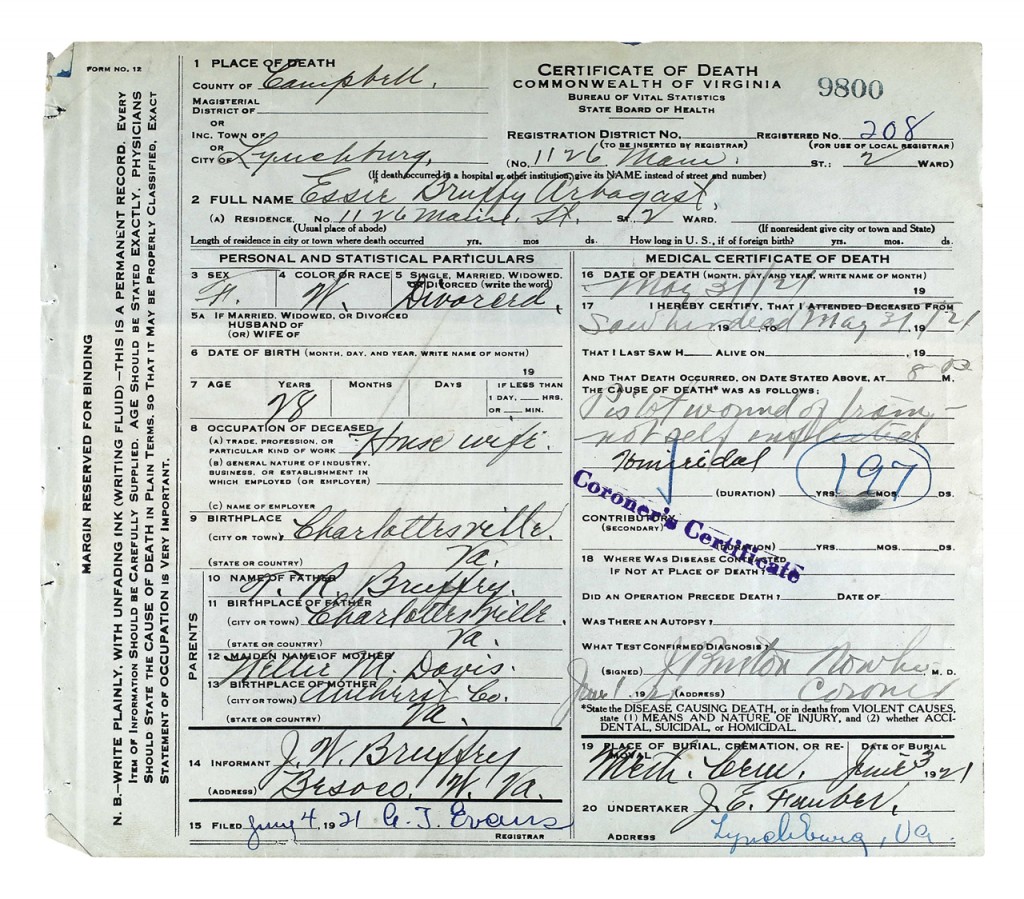 FORM NO. 12
MARGIN RESERVED FOR BINDING
N. B.—WRITE PLAINLY, WITH UNFADING INK (WRITING FLUID)—THIS IS A PERMANENT RECORD. EVERY
ITEM OF INFORMATION SHOULD BE CAREFULLY SUPPLIED. AGE SHOULD BE STATED EXACTLY. PHYSICIANS
SHOULD STATE THE CAUSE OF DEATH IN PLAIN TERMS, SO THAT IT MAY BE PROPERLY CLASSIFIED. EXACT
STATEMENT OF OCCUPATION IS VERY IMPORTANT.
CERTIFICATE OF DEATH
COMMONWEALTH OF VIRGINIA
BUREAU OF VITAL STATISTICS
STATE BOARD OF HEALTH
9800
1 PLACE OF DEATH
COUNTY OF Campbell,
MAGISTERIAL
DISTRICT OF
OR
INC. TOWN OF
OR
CITY OF Lynchburg,
REGISTRATION DISTRICT NO. REGISTERED NO. 208
(TO BE INSERTED BY REGISTRAR) (FOR USE OF LOCAL REGISTRAR)
(NO. 1126 Main. ST.: 2 WARD)
(If death occurred in a hospital or other institution, give its NAME instead of street and number)
2 FULL NAME Essie Bruffy Arbogast,
(A) RESIDENCE. NO. 1126 Main St. ST. 2 WARD.
(Usual place of abode) (If nonresident give city or town and State)
Length of residence in city or town where death occurred yrs. mos ds. How long in U. S., if of foreign birth? yrs. mos. ds.
PERSONAL AND STATISTICAL PARTICULARS
3 SEX 4 COLOR OR RACE 5 SINGLE, MARRIED, WIDOWED,
OR DIVORCED (write the word)
W. Divorced,
5A IF MARRIED, WIDOWED, OR DIVORCED
HUSBAND OF
(OR) WIFE OF
6 DATE OF BIRTH (MONTH, DAY, AND YEAR, WRITE NAME OF MONTH)
19
7 AGE YEARS MONTHS DAYS IF LESS THAN
1 DAY, HRS.
OR MIN.
28
8 OCCUPATION OF DECEASED
(A) TRADE, PROFESSION, OR
PARTICULAR KIND OF WORK House wife.
(B) GENERAL NATURE OF INDUSTRY,
BUSINESS, OR ESTABLISHMENT IN
WHICH EMPLOYED (OR EMPLOYER)
(C) NAME OF EMPLOYER
9 BIRTHPLACE
(CITY OR TOWN) Charlottesville.
(STATE OR COUNTRY) Va.
PARENTS
10 NAME OF FATHER
T. R. Bruffry.
11 BIRTHPLACE OF FATHER
(CITY OR TOWN) Charlottesville,
(STATE OR COUNTRY) Va.
12 MAIDEN NAME OF MOTHER
Nellie M. Davis.
13 BIRTHPLACE OF MOTHER
(CITY OR TOWN) Amherst Co.
(STATE OR COUNTRY) Va.
14 INFORMANT J. W. Bruffry
(ADDRESS) Besoco, W. Va.
15 FILED June 4, 1921 G. T. Evans
REGISTRAR
MEDICAL CERTIFICATE OF DEATH
16 DATE OF DEATH (MONTH, DAY, AND YEAR, WRITE NAME OF MONTH)
May 31/21 19
17 I HEREBY CERTIFY, THAT I ATTENDED DECEASED FROM
Saw her dead, 19 , TO May 31, 19/21
THAT I LAST SAW H ALIVE ON , 19
AND THAT DEATH OCCURRED, ON DATE STATED ABOVE, AT 8 M.
THE CAUSE OF DEATH* WAS AS FOLLOWS:
Pistol wound of brain—
not self inflicted
Homicidal 197
(DURATION) YRS. MOS. DS.
Coroner's Certificate
CONTRIBUTORY
(SECONDARY)
(DURATION) YRS. MOS. DS.
18 WHERE WAS DISEASE CONTRACTED
IF NOT AT PLACE OF DEATH?
DID AN OPERATION PRECEDE DEATH? DATE OF
WAS THERE AN AUTOPSY?
WHAT TEST CONFIRMED DIAGNOSIS?
(SIGNED) J Burton Nowlin, M. D.
June 1, 1921 (ADDRESS) Coroner
*State the DISEASE CAUSING DEATH, or in deaths from VIOLENT CAUSES,
state (1) MEANS AND NATURE OF INJURY, and (2) whether ACCI-
DENTAL, SUICIDAL, or HOMICIDAL.
19 PLACE OF BURIAL, CREMATION, OR RE-
MOVAL DATE OF BURIAL
Meth. Cem. June 3 1921
20 UNDERTAKER J. E. Fauber.
ADDRESS Lynchburg, Va.